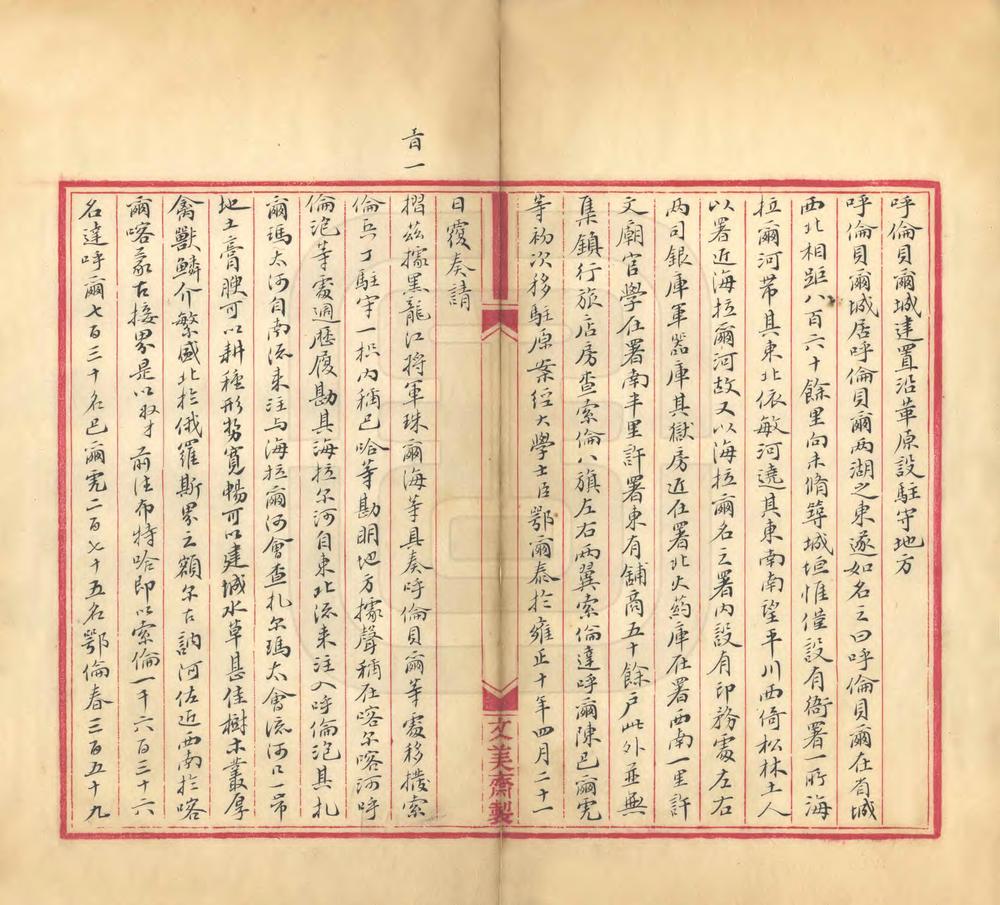 呼倫貝爾城建置沿革原設駐守地方
呼倫貝爾城居呼倫貝爾兩湖之東遂如名之曰呼倫貝爾在省城
西北相距八百六十餘里向未脩築城垣惟僅設有衙署一所海
拉爾河帶其東北依敏河遶其東南南望平川西倚松林土人
以署近海拉爾河故又以海拉爾名之署內設有印務處左右
兩司銀庫軍器庫其獄房近在署北火药庫在署西南一里許
文廟官學在署南半里許署東有舖商五十餘戶此外並無
集鎮行旅店房查索倫八旗左右兩翼索倫達呼爾陳巴爾虎
等初次移駐原案經大學士臣鄂爾泰於雍正十年四月二十一
日覆奏請
旨一
摺茲據黑龍江將軍珠爾海等具奏呼倫貝爾等處移撥索
倫兵丁駐守一摺內稱巴哈等勘明地方據聲稱在喀尔喀河呼
倫泡等處週歷履勘其海拉尔河自東北流来注入呼倫泡其札
爾瑪太河自南流来注与海拉爾河會查札尔瑪太會流河口一帶
地土膏腴可以耕種形势寬暢可以建城水草甚佳樹木叢厚
禽獸鱗介繁盛北於俄羅斯界之額尔古訥河佐近西南於喀
爾喀蒙古接界是以将前往布特哈即以索倫一千六百三十六
名達呼爾七百三十名巴爾虎二百七十五名鄂倫春三百五十九
文美齋製